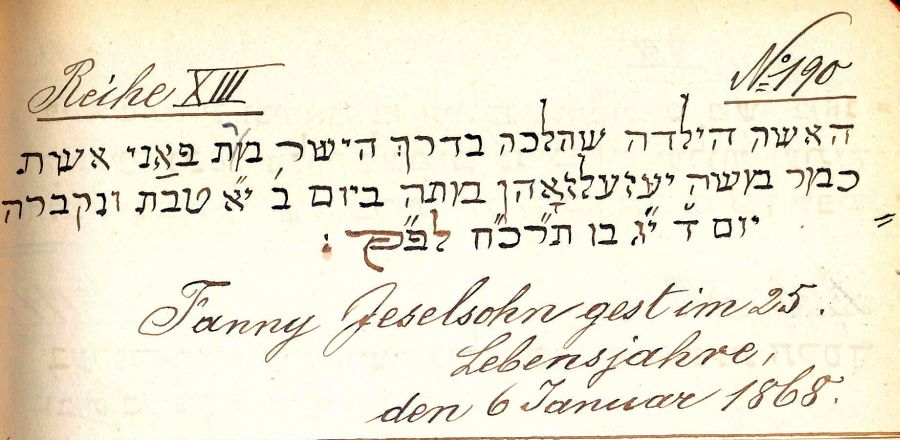 Reihe XIII
No 190
האשה הילדה שהלכה בדרך הישר מרת פאני אשת
כמר משה יעזעלזאהן מתה ביום ב׳ י״א טבת ונקברה
יום ד׳ י״ג בו תרכ״ח לפ״ק :
Fanny Jeselsohn gest im 25.
Lebensjahre,
den 6 Januar 1868.